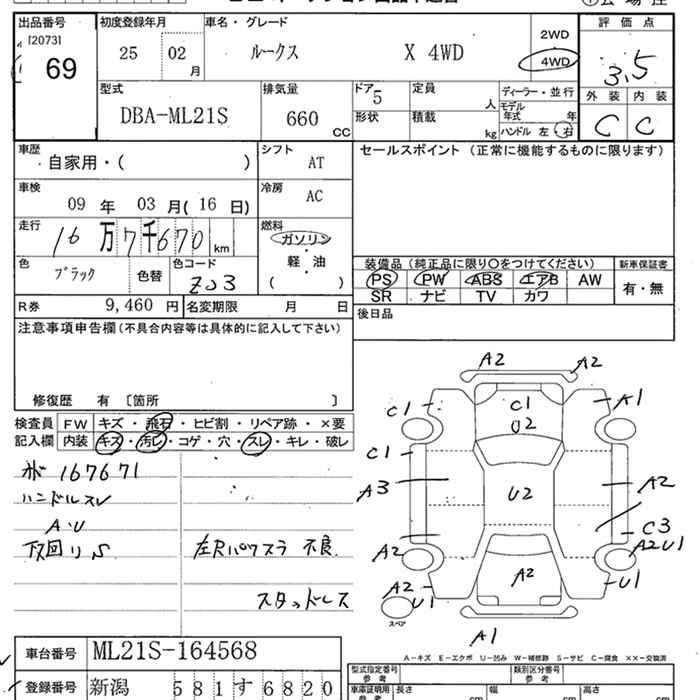 出品番号 初度登録年月 車名・グレード 評価点
[2073]
69
25 02 月
ルークス X 4WD
2WD
4WD
3.5
外装 内装
C C
型式
DBA-ML21S
排気量
660 CC
ドア 5
形状
定員 人
積載 kg
ディーラー・並行
モデル年式 年
ハンドル 左・右
車歴
自家用・( )
シフト AT
セールスポイント (正常に機能するものに限ります)
車検
09 年 03 月( 16 日)
冷房 AC
走行
16 万 7 千 670 km
燃料
ガソリン
軽・油
( )
色 ブラック 色替 色コード ZJ3
装備品(純正品に限り○をつけてください) 新車保証書
PS PW ABS エアB AW
SR ナビ TV カワ
有・無
R券 9,460 円 名変期限 月 日
後日品
注意事項申告欄(不具合内容等は具体的に記入して下さい)
修復歴 有 〔箇所 〕
検査員記入欄
FW キズ・飛石・ヒビ割・リペア跡・×要
内装 キズ・汚レ・コゲ・穴・スレ・キレ・破レ
167671
ハンドルスレ
A・U
下回り S
左Rパワスラ 不良
スタッドレス
A2 A2
C1 C1 U2 A1
C1
A3 U2 A2
C3
A2 A2U1
A2 U1 A2 U1
スペア
A1
A-キズ E-エクボ U-凹み W-補修跡 S-サビ C-腐食 ××-交換済
車台番号 ML21S-164568
登録番号 新潟 581 す 6820
型式指定番号 参考 類別区分番号 参考
車庫証明用 参考 長さ cm 幅 cm 高さ cm